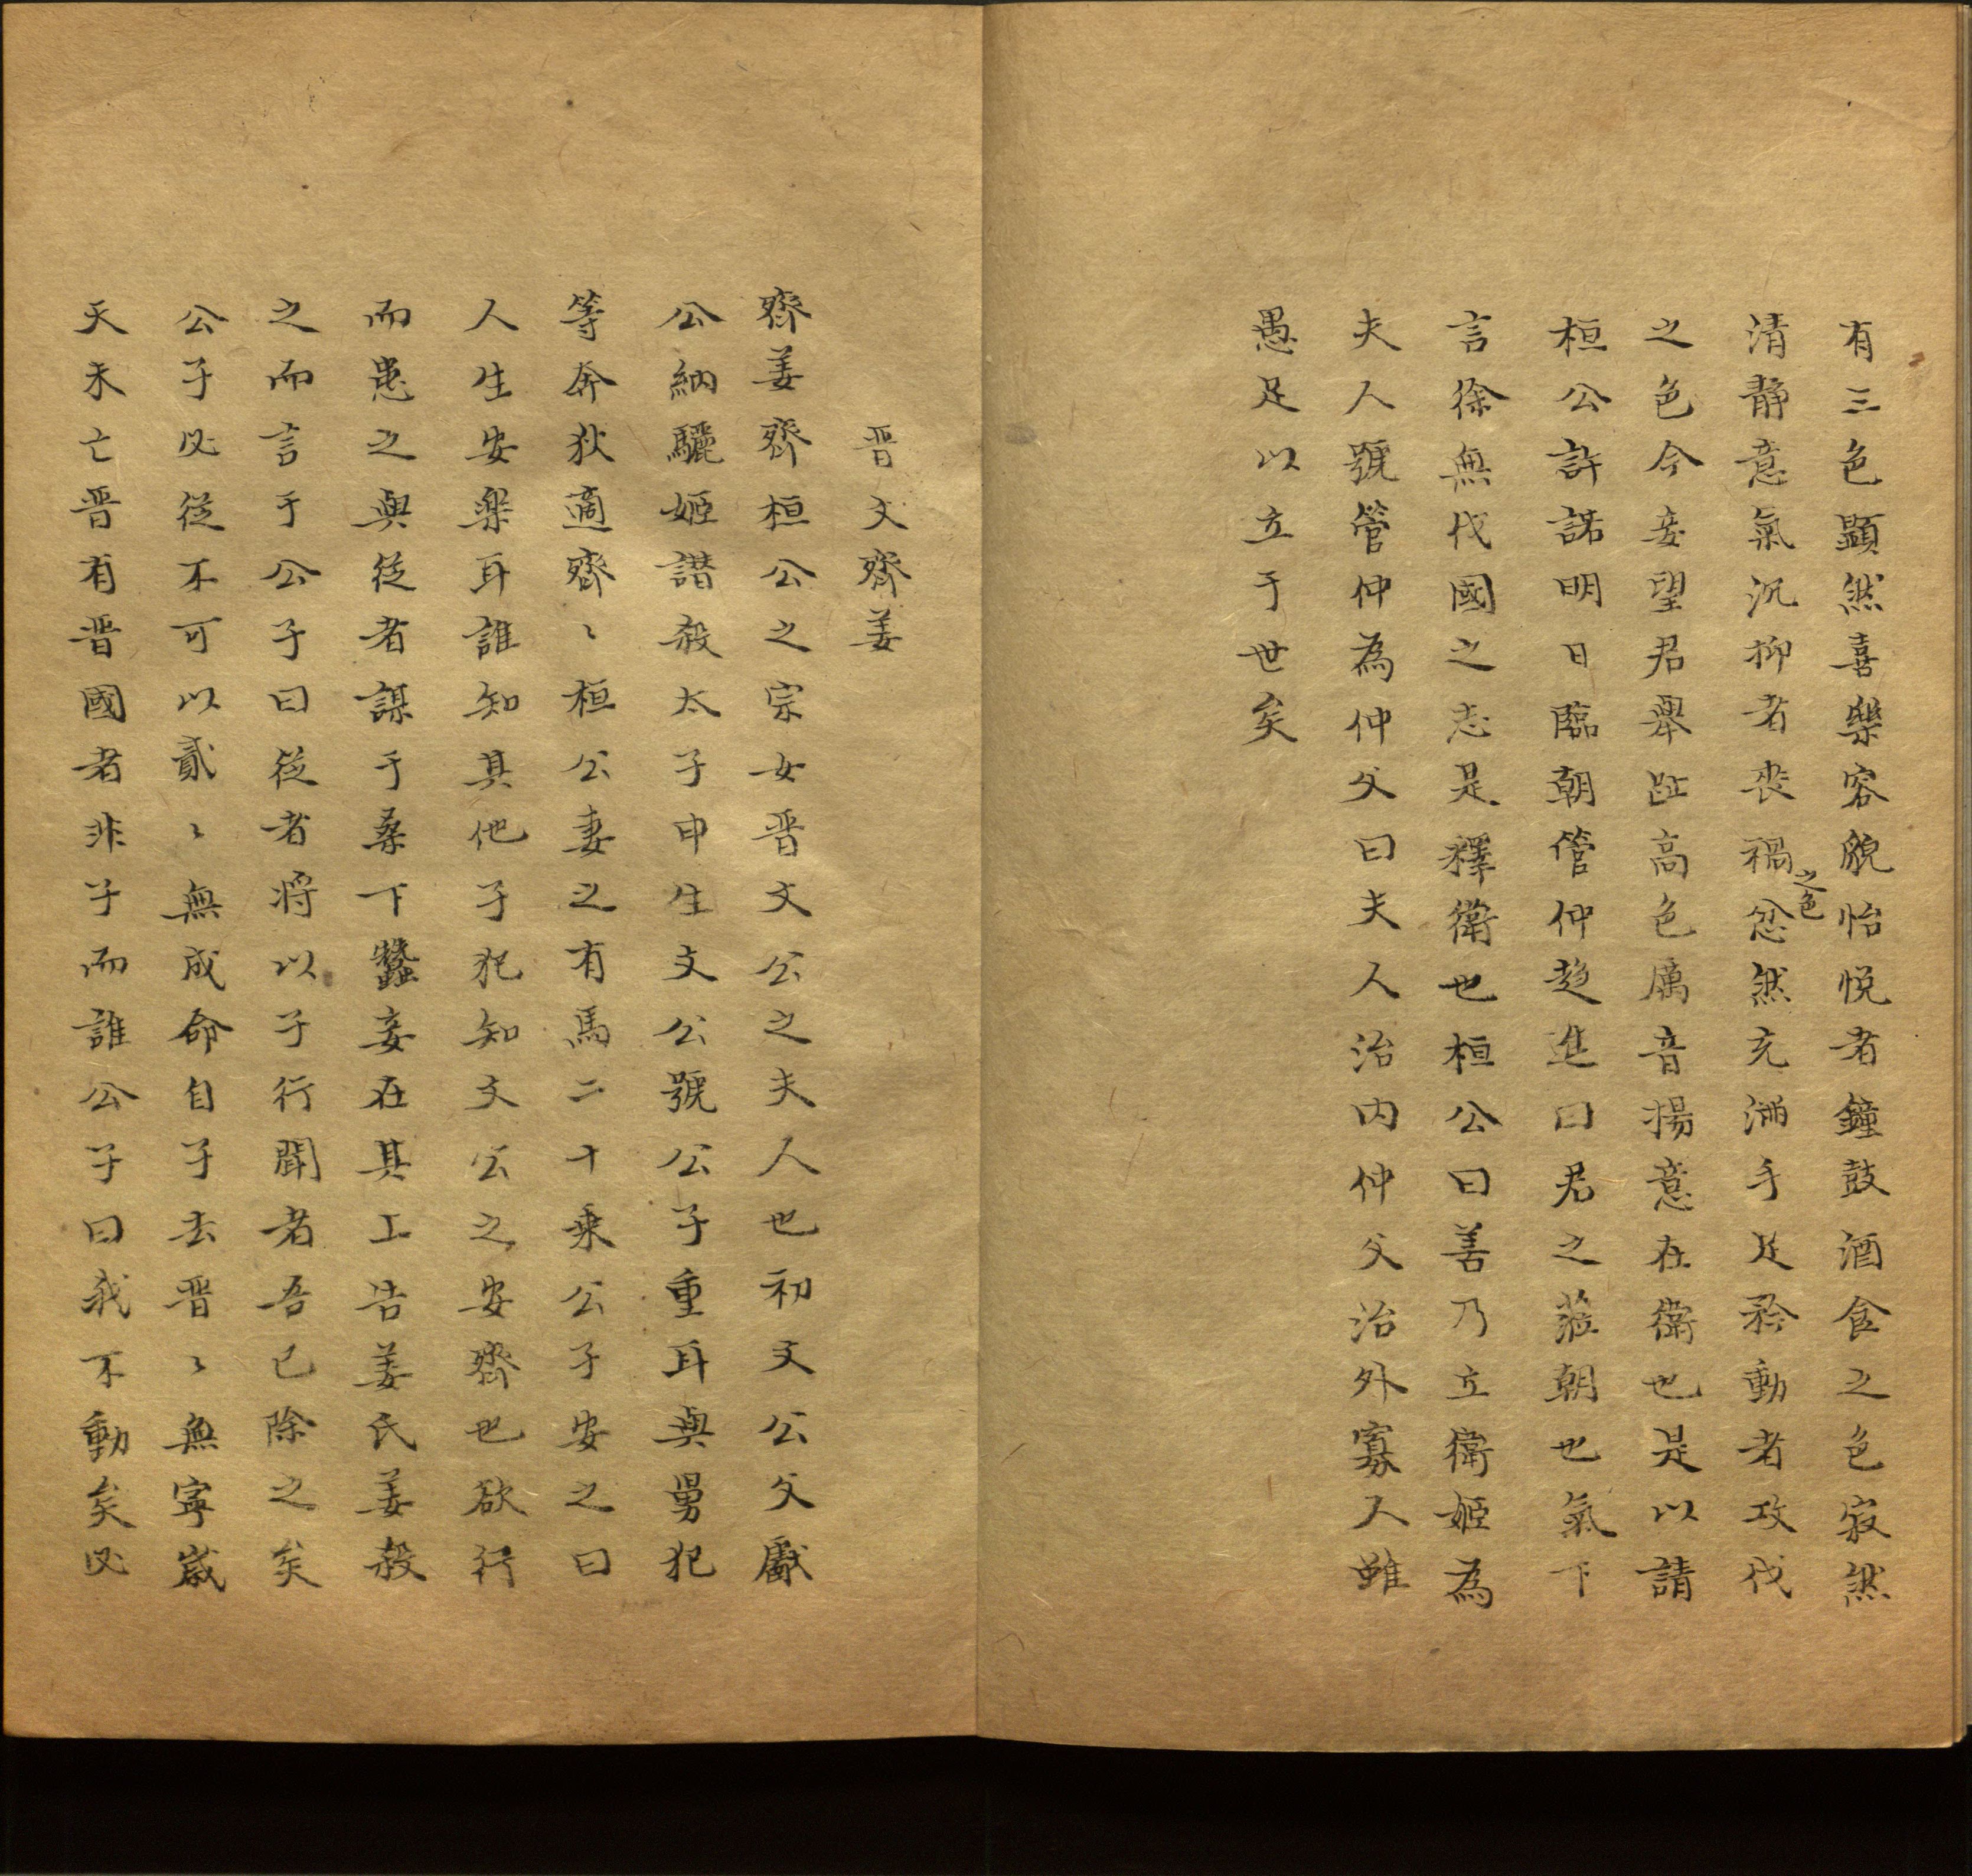 有三色顯然喜樂容貌怡悦者鐘鼓酒食之色寂然
清静意氣沉抑者喪禍之色忿然充滿手足矜動者攻伐
之色今妾望君舉趾高色厲音揚意在衛也是以請
桓公許諾明日臨朝管仲趨進曰君之蒞朝也氣下
言徐無伐國之志是釋衛也桓公曰善乃立衛姬為
夫人號管仲為仲父曰夫人治内仲父治外寡人雖
愚足以立于世矣
晋文齊姜
齊姜齊桓公之宗女晋文公之夫人也初文公父獻
公納驪姬譖殺太子申生文公號公子重耳與舅犯
等奔狄適齊〻桓公妻之有馬二十乗公子安之曰
人生安樂耳誰知其他子犯知文公之安齊也欲行
而患之與從者謀于桑下蠶妾在其工告姜氏姜殺
之而言于公子曰從者将以子行聞者吾已除之矣
公子必從不可以貳〻無成命自子去晋〻無寧嵗
天未亡晋有晋國者非子而誰公子曰我不動矣必